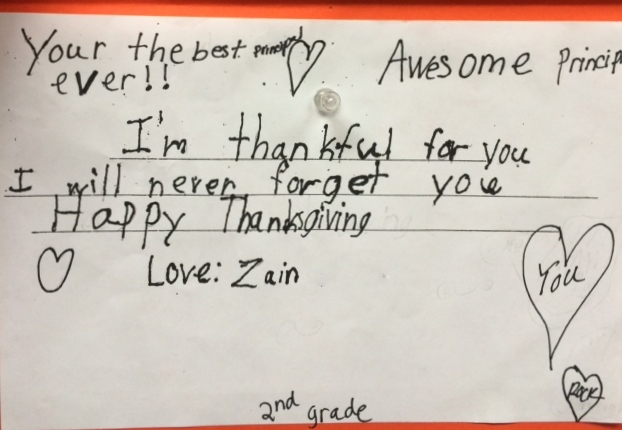 Your the best principal
ever!!
Awesome Princip
I'm thankful for you
I will never forget you
Happy Thanksgiving
Love: Zain
You
Rock
2nd grade